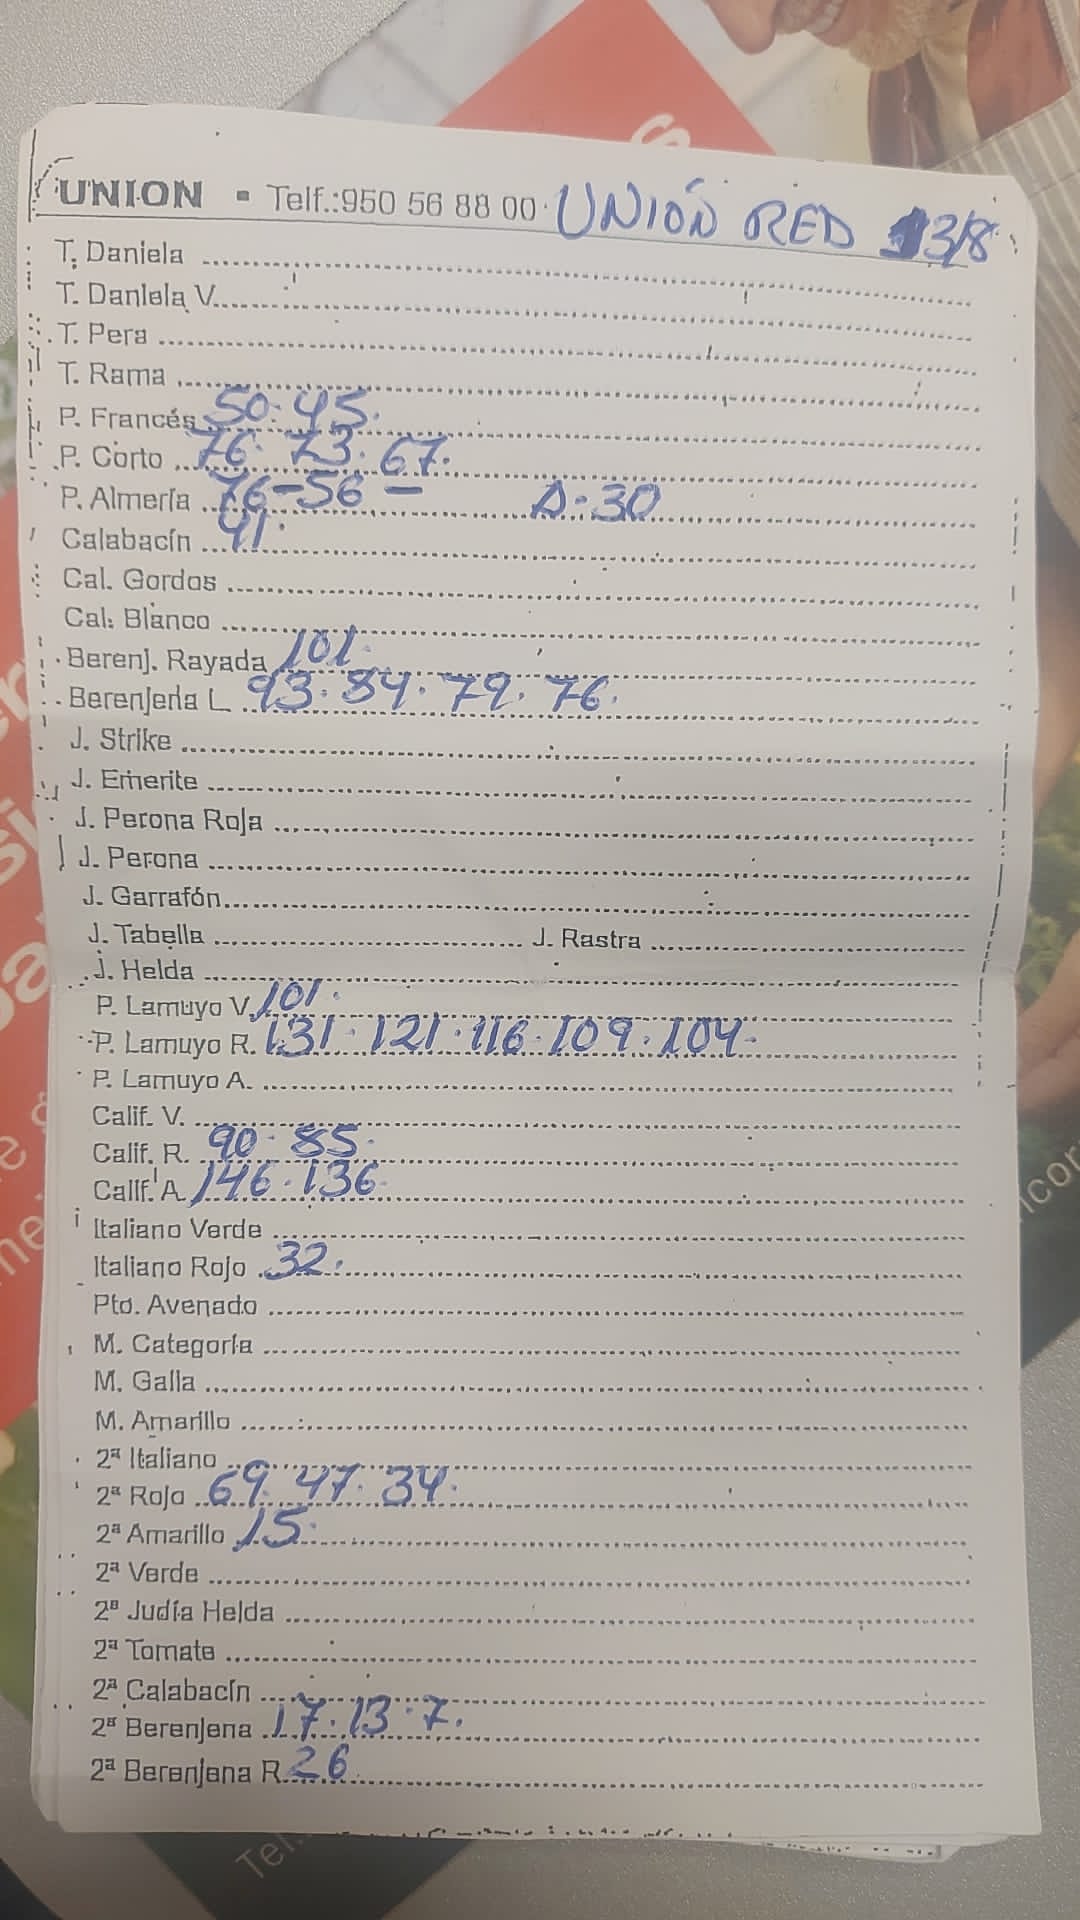 UNION - Telf.:950 56 88 00 UNIÓN RED 13/8
T. Daniela
T. Daniela V.
T. Pera
T. Rama
P. Francés 50. 45.
P. Corto 76. 73. 67.
P. Almería 76-56 - D.30
Calabacín 41.
Cal. Gordos
Cal. Blanco
Berenj. Rayada 101.
Berenjena L 93. 84. 79. 76.
J. Strike
J. Emerite
J. Perona Roja
J. Perona
J. Garrafón
J. Tabella J. Rastra
J. Helda
P. Lamuyo V. 101.
P. Lamuyo R. 131. 121. 116. 109. 104.
P. Lamuyo A.
Calif. V.
Calif. R. 90. 85.
Calif. A. 146. 136.
Italiano Verde
Italiano Rojo 32.
Pto. Avenado
M. Categoría
M. Galia
M. Amarillo
2ª Italiano
2ª Rojo 69. 47. 34.
2ª Amarillo 15.
2ª Verde
2ª Judía Helda
2ª Tomate
2ª Calabacín
2ª Berenjena 17. 13. 7.
2ª Berenjena R. 26